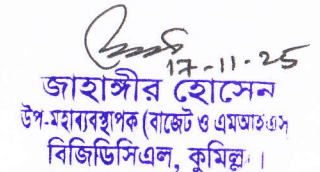 17-11-25
জাহাঙ্গীর হোসেন
উপ-মহাব্যবস্থাপক (বাজেট ও এমআইএস
বিজিডিসিএল, কুমিল্লা।